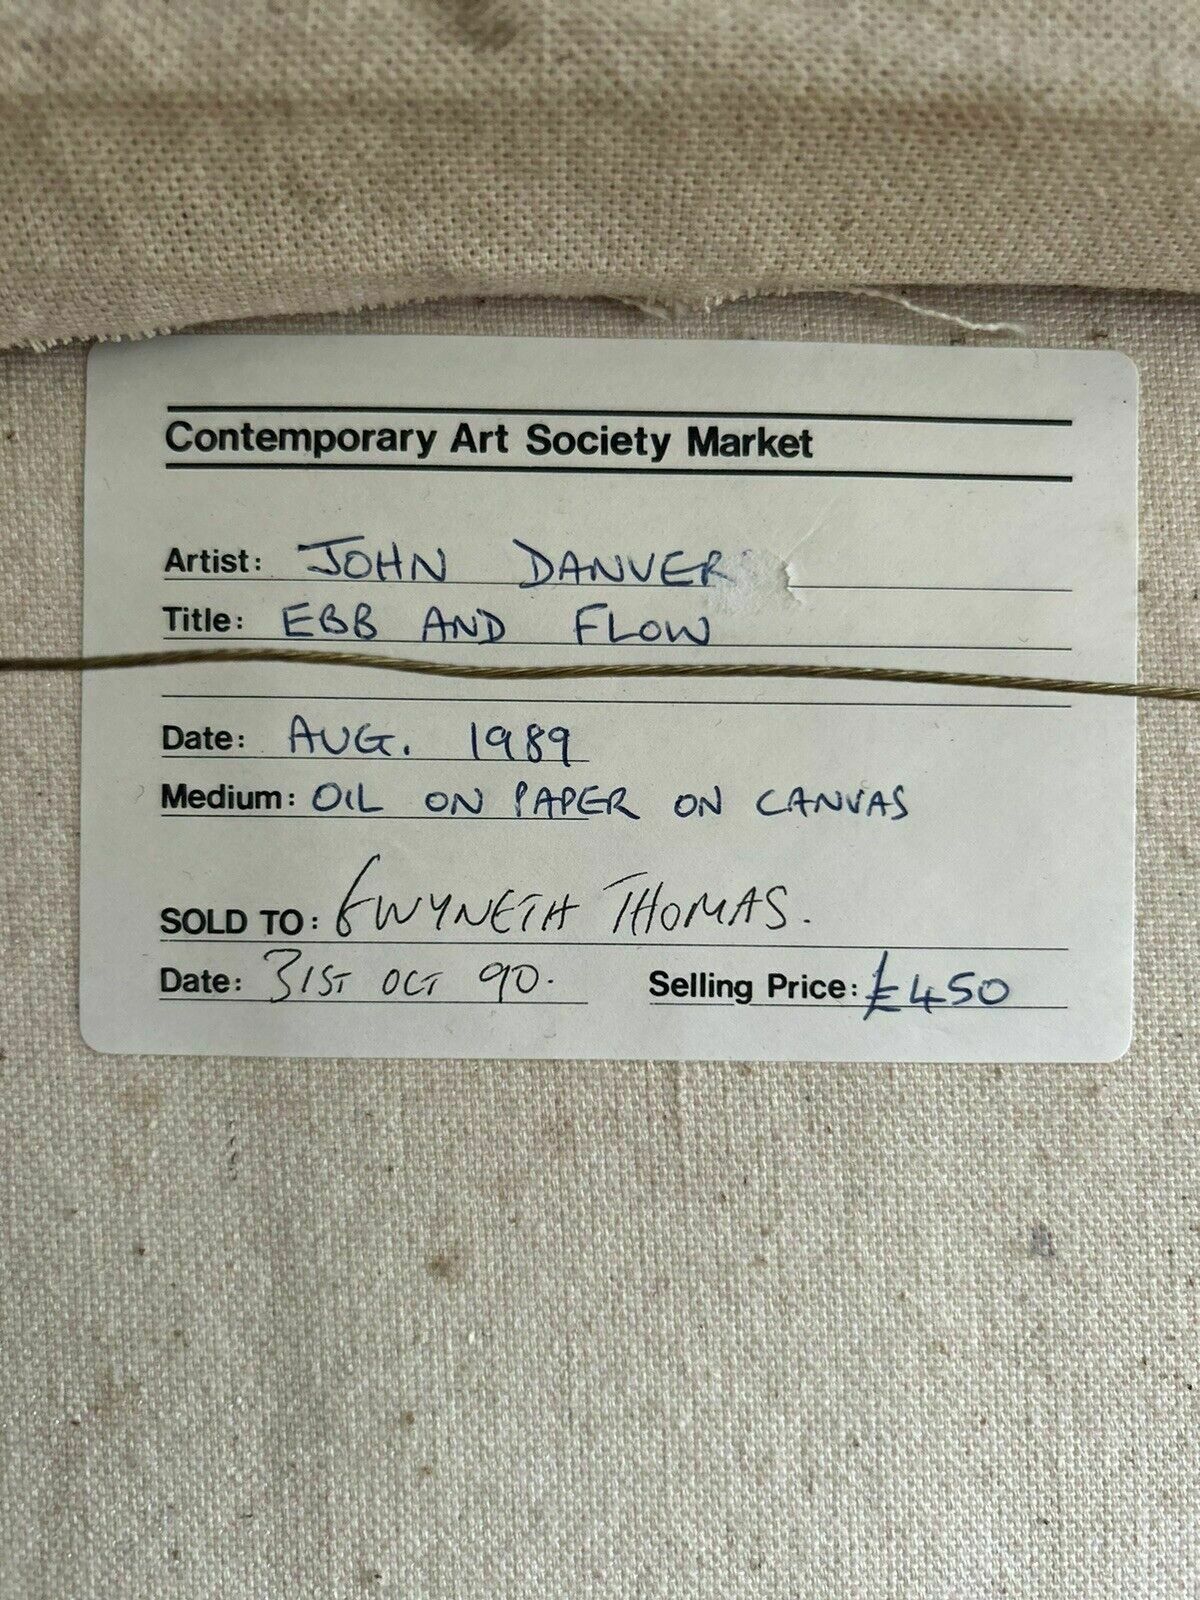 Contemporary Art Society Market
Artist: JOHN DANVER
Title: EBB AND FLOW
Date: AUG. 1989
Medium: OIL ON PAPER ON CANVAS
SOLD TO: GWYNETH THOMAS.
Date: 31ST OCT 90.
Selling Price: £450